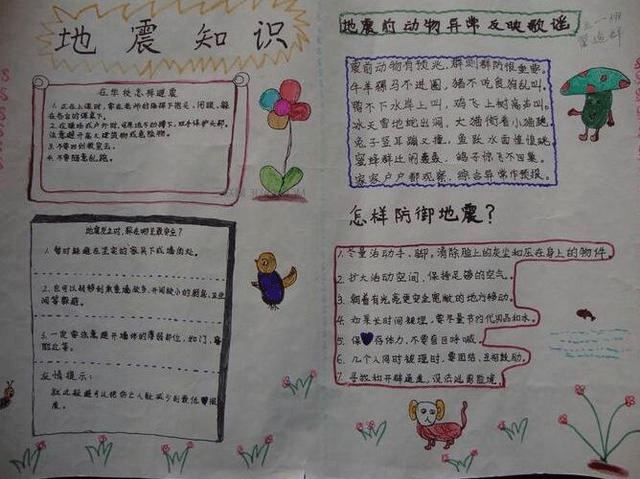 地震知识
在学校怎样避震
1.正在上课时，要在老师的指挥下抱头、闭眼、躲
在各自的课桌下。
2.在操场或户外时，可原地不动蹲下，双手保护头部，
注意避开高大建筑物或危险物。
3.不要回到教室去。
4.不要随意乱跑。
地震发生时，躲在哪里最安全？
1.暂时躲避在坚实的家具下或墙角处。
2.也可以转移到承重墙较多、开间较小的厨房、卫生
间等躲避。
3.一定要注意避开墙体的薄弱部位，如门、窗
附近等。
友情提示：
以上躲避可以把伤亡人数减少到最低限
度。
地震前动物异常反映歌谣
一班
震前动物有预兆，群测群防很重要。
牛羊骡马不进圈，猪不吃食狗乱叫。
鸭不下水岸上叫，鸡飞上树高声叫。
冰天雪地蛇出洞，大猫衔着小猫跑。
兔子竖耳蹦又撞，鱼跃水面惶惶跳。
蜜蜂群迁闹轰轰，鸽子惊飞不回巢。
家家户户都观察，综合异常作预报。
怎样防御地震？
1.尽量活动手、脚，清除脸上的灰尘和压在身上的物件。
2.扩大活动空间，保持足够的空气。
3.朝着有光亮更安全宽敞的地方移动。
4.如果长时间被埋，要尽量节约代用品和水。
5.保存体力，不要盲目呼喊。
6.几个人同时被埋时，要团结，互相鼓励。
7.寻找和开辟通道，设法逃离险境。